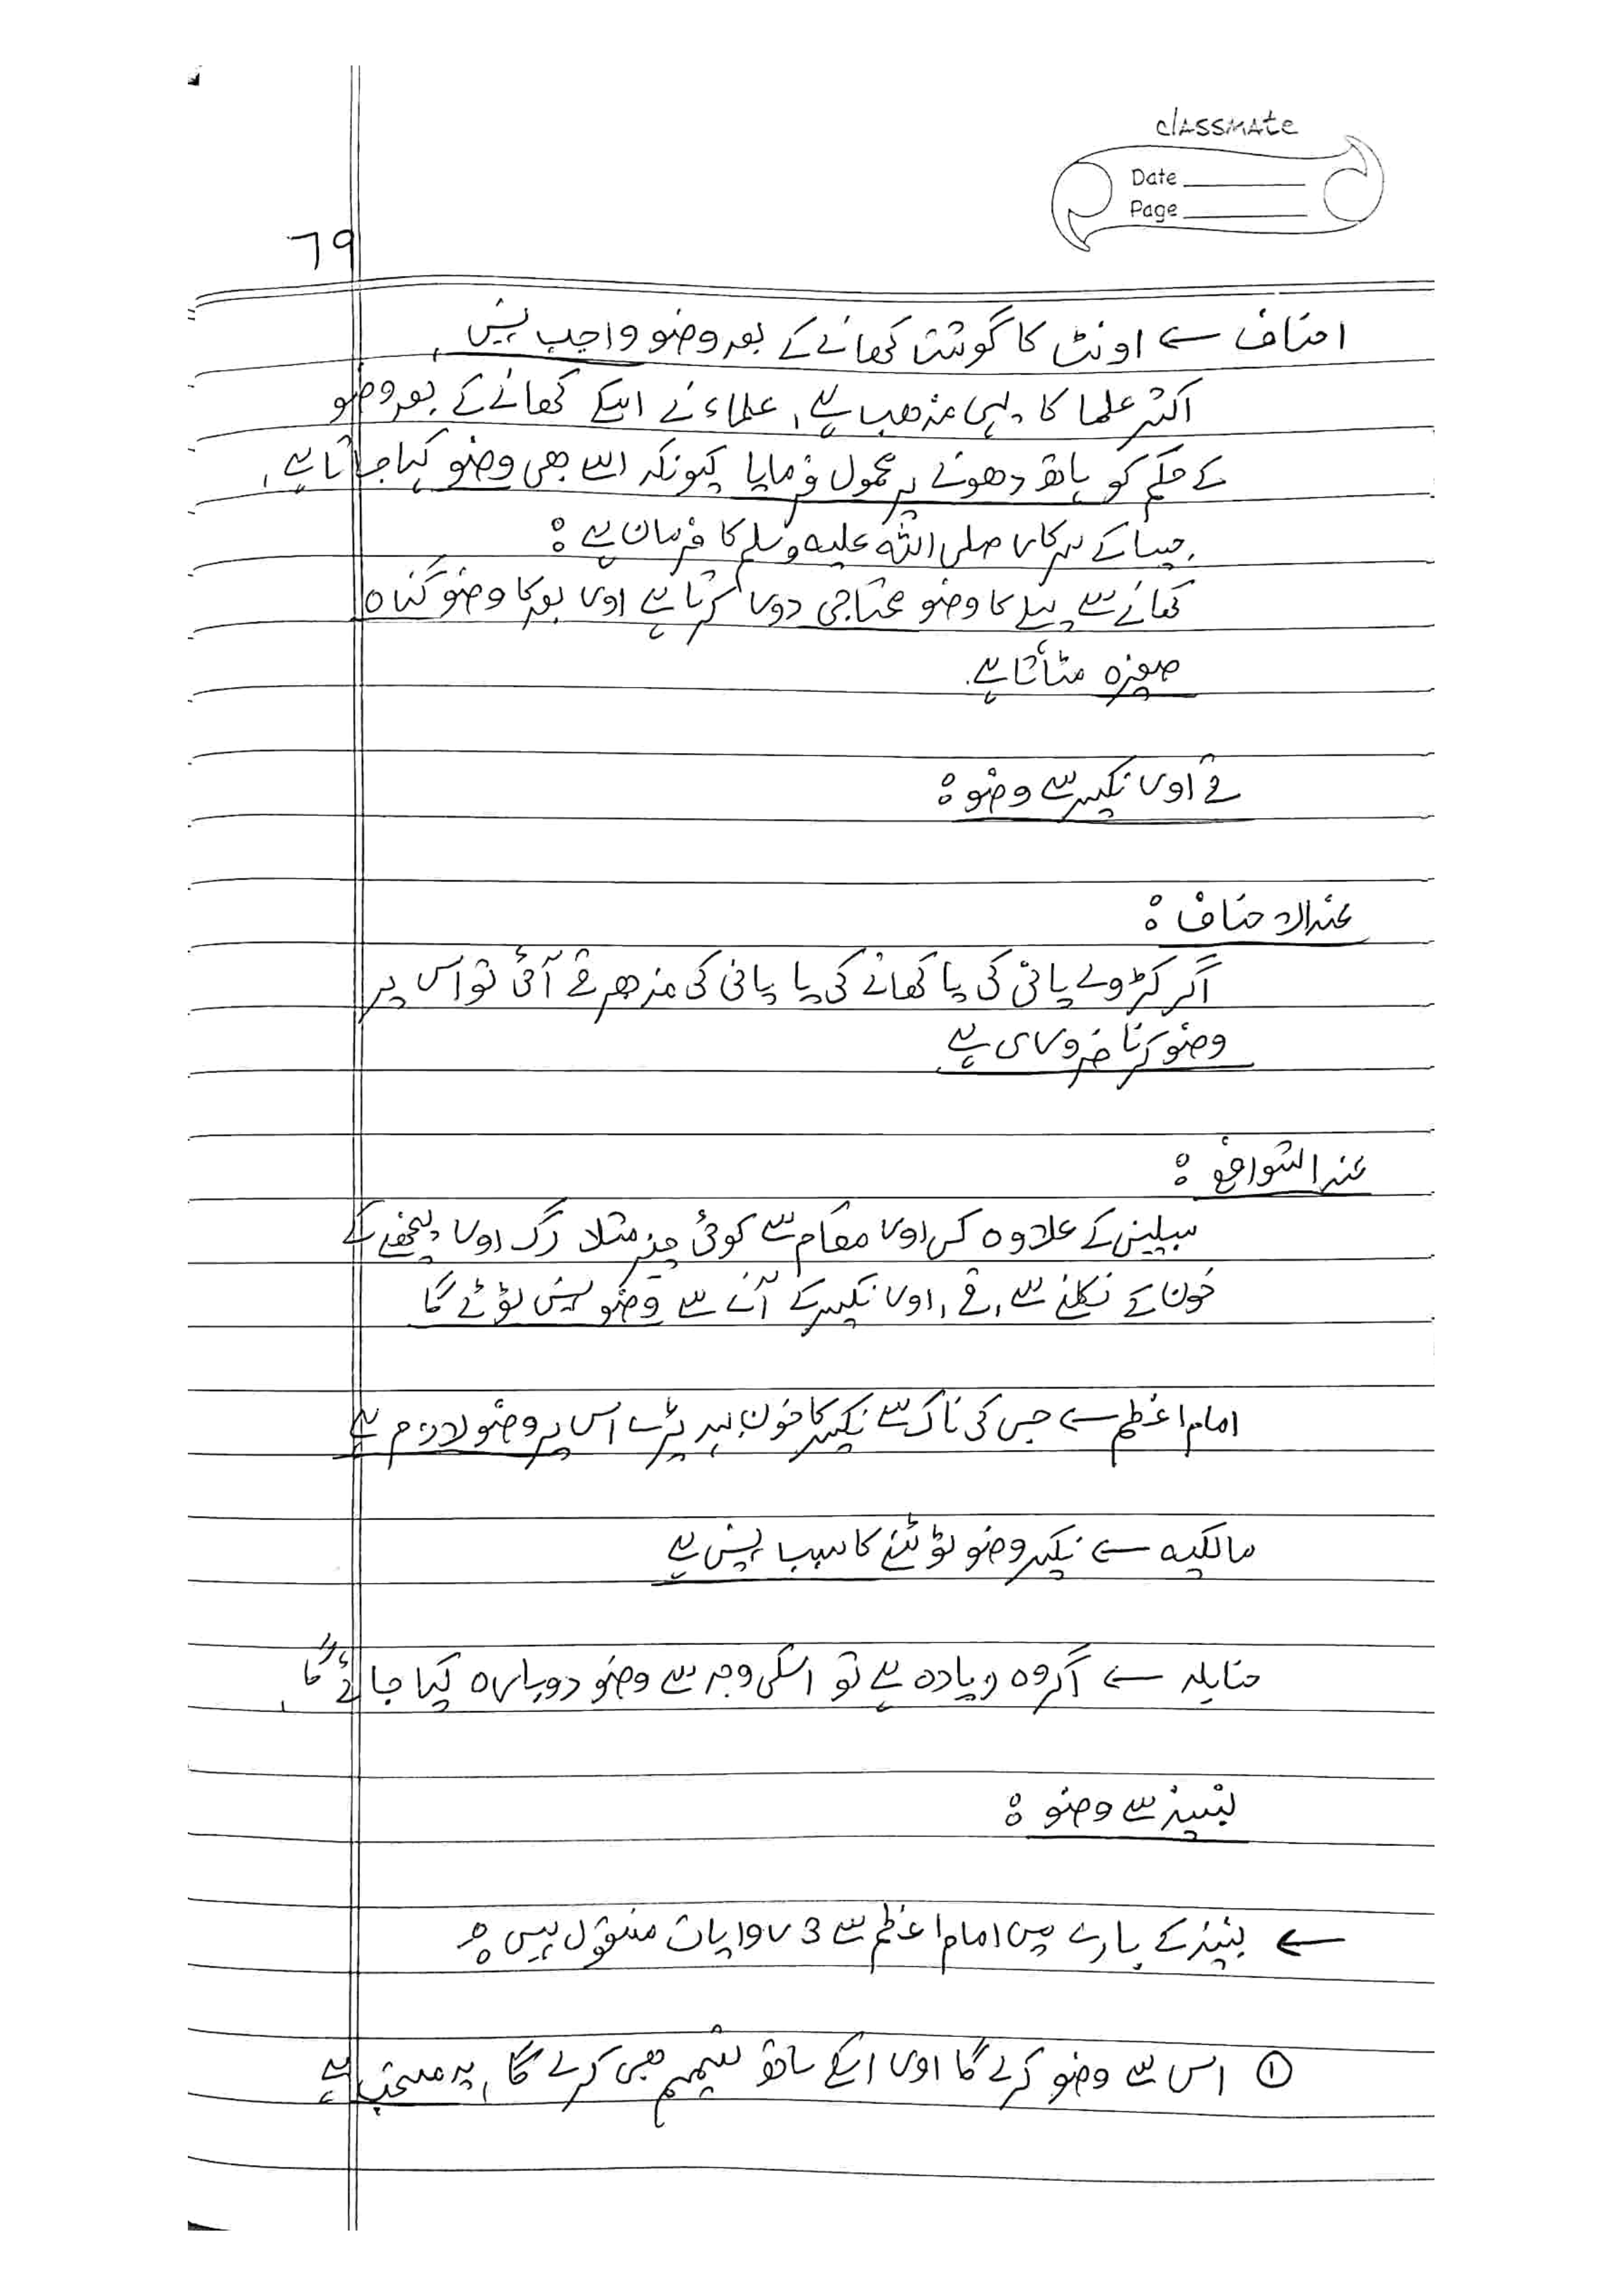 classmate
Date
Page
79
احناف ← اونٹ کا گوشت کھانے کے بعد وضو واجب نہیں،
اکثر علما کا یہی مذھب ہے، علماء نے اسکے کھانے کے بعد وضو
کے حکم کو ہاتھ دھونے پر محمول فرمایا کیونکہ اسے بھی وضو کہا جاتا ہے،
جیسا کے سرکار صلی اللہ علیہ وسلم کا فرمان ہے :
کھانے سے پہلے کا وضو محتاجی دور کرتا ہے اور بعد کا وضو گناہ
صغیرہ مٹاتا ہے.
قے اور نکسیر سے وضو :
عند الاحناف :
اگر کڑوے پانی کی یا کھانے کی یا پانی کی منھ بھر قے آئی تو اس پر
وضو کرنا ضروری ہے
عند الشوافع :
سبیلین کے علاوہ کسی اور مقام سے کوئی چیز مثلا رگ اور پچھنے کے
خون کے نکلنے سے، قے، اور نکسیر کے آنے سے وضو نہیں ٹوٹے گا
امام اعظم ← جس کی ناک سے نکسیر کا خون بہہ پڑے اس پر وضو لازم ہے
مالکیہ ← نکسیر وضو ٹوٹنے کا سبب نہیں ہے
حنابلہ ← اگر وہ زیادہ ہے تو اسکی وجہ سے وضو دوبارہ کیا جائے گا،
نبیذ سے وضو :
← نبیذ کے بارے میں امام اعظم سے 3 روایات منقول ہیں :
① اس سے وضو کرے گا اور اسکے ساتھ تیمم بھی کرے گا، یہ مستحب ہے